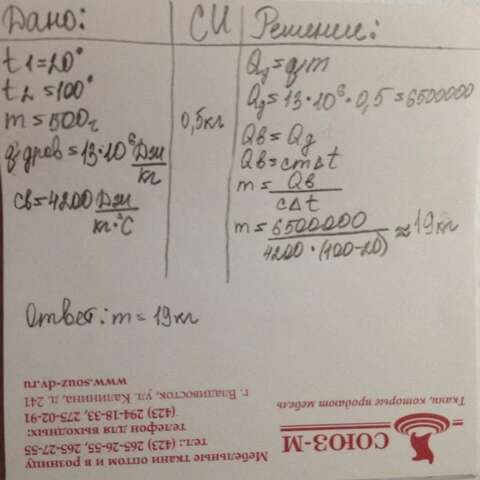 Дано:
t1=20°
t2=100°
m=500г
q дров=13·10⁶ Дж/кг
cв=4200 Дж/кг·°C
СИ
0,5кг
Решение:
Qд=qm
Qд=13·10⁶·0,5=6500000
Qв=Qд
Qв=cmΔt
m=Qв/cΔt
m=6500000/4200·(100-20)≈19кг
Ответ: m=19кг
СОЮЗ-М
Ткани, которые продают мебель
Мебельные ткани оптом и в розницу
тел.: (423) 265-26-55, 265-27-55
телефон для выходных:
(423) 294-18-33, 275-02-91
г. Владивосток, ул. Калинина, д. 241
www.souz-dv.ru